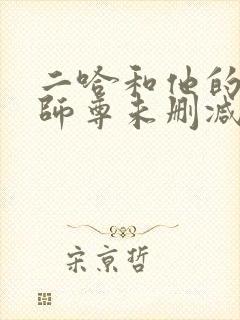 二哈和他的
師尊未删减
宋京哲